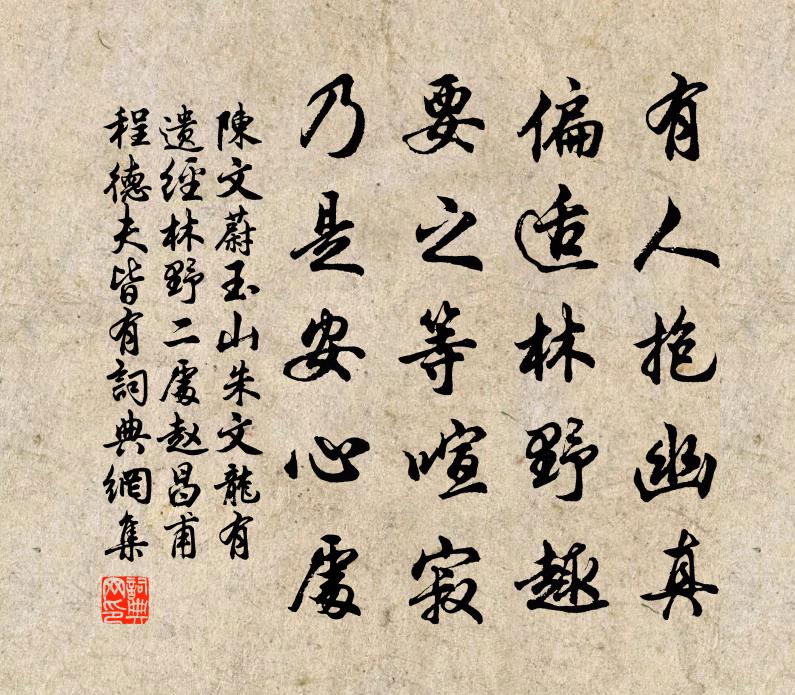 有人抱幽真
偏适林野趣
要之等喧寂
乃是安心處
陳文蔚玉山朱文龍有
遗經林野二處赵昌甫
程德夫皆有詞典網集
詞典網印